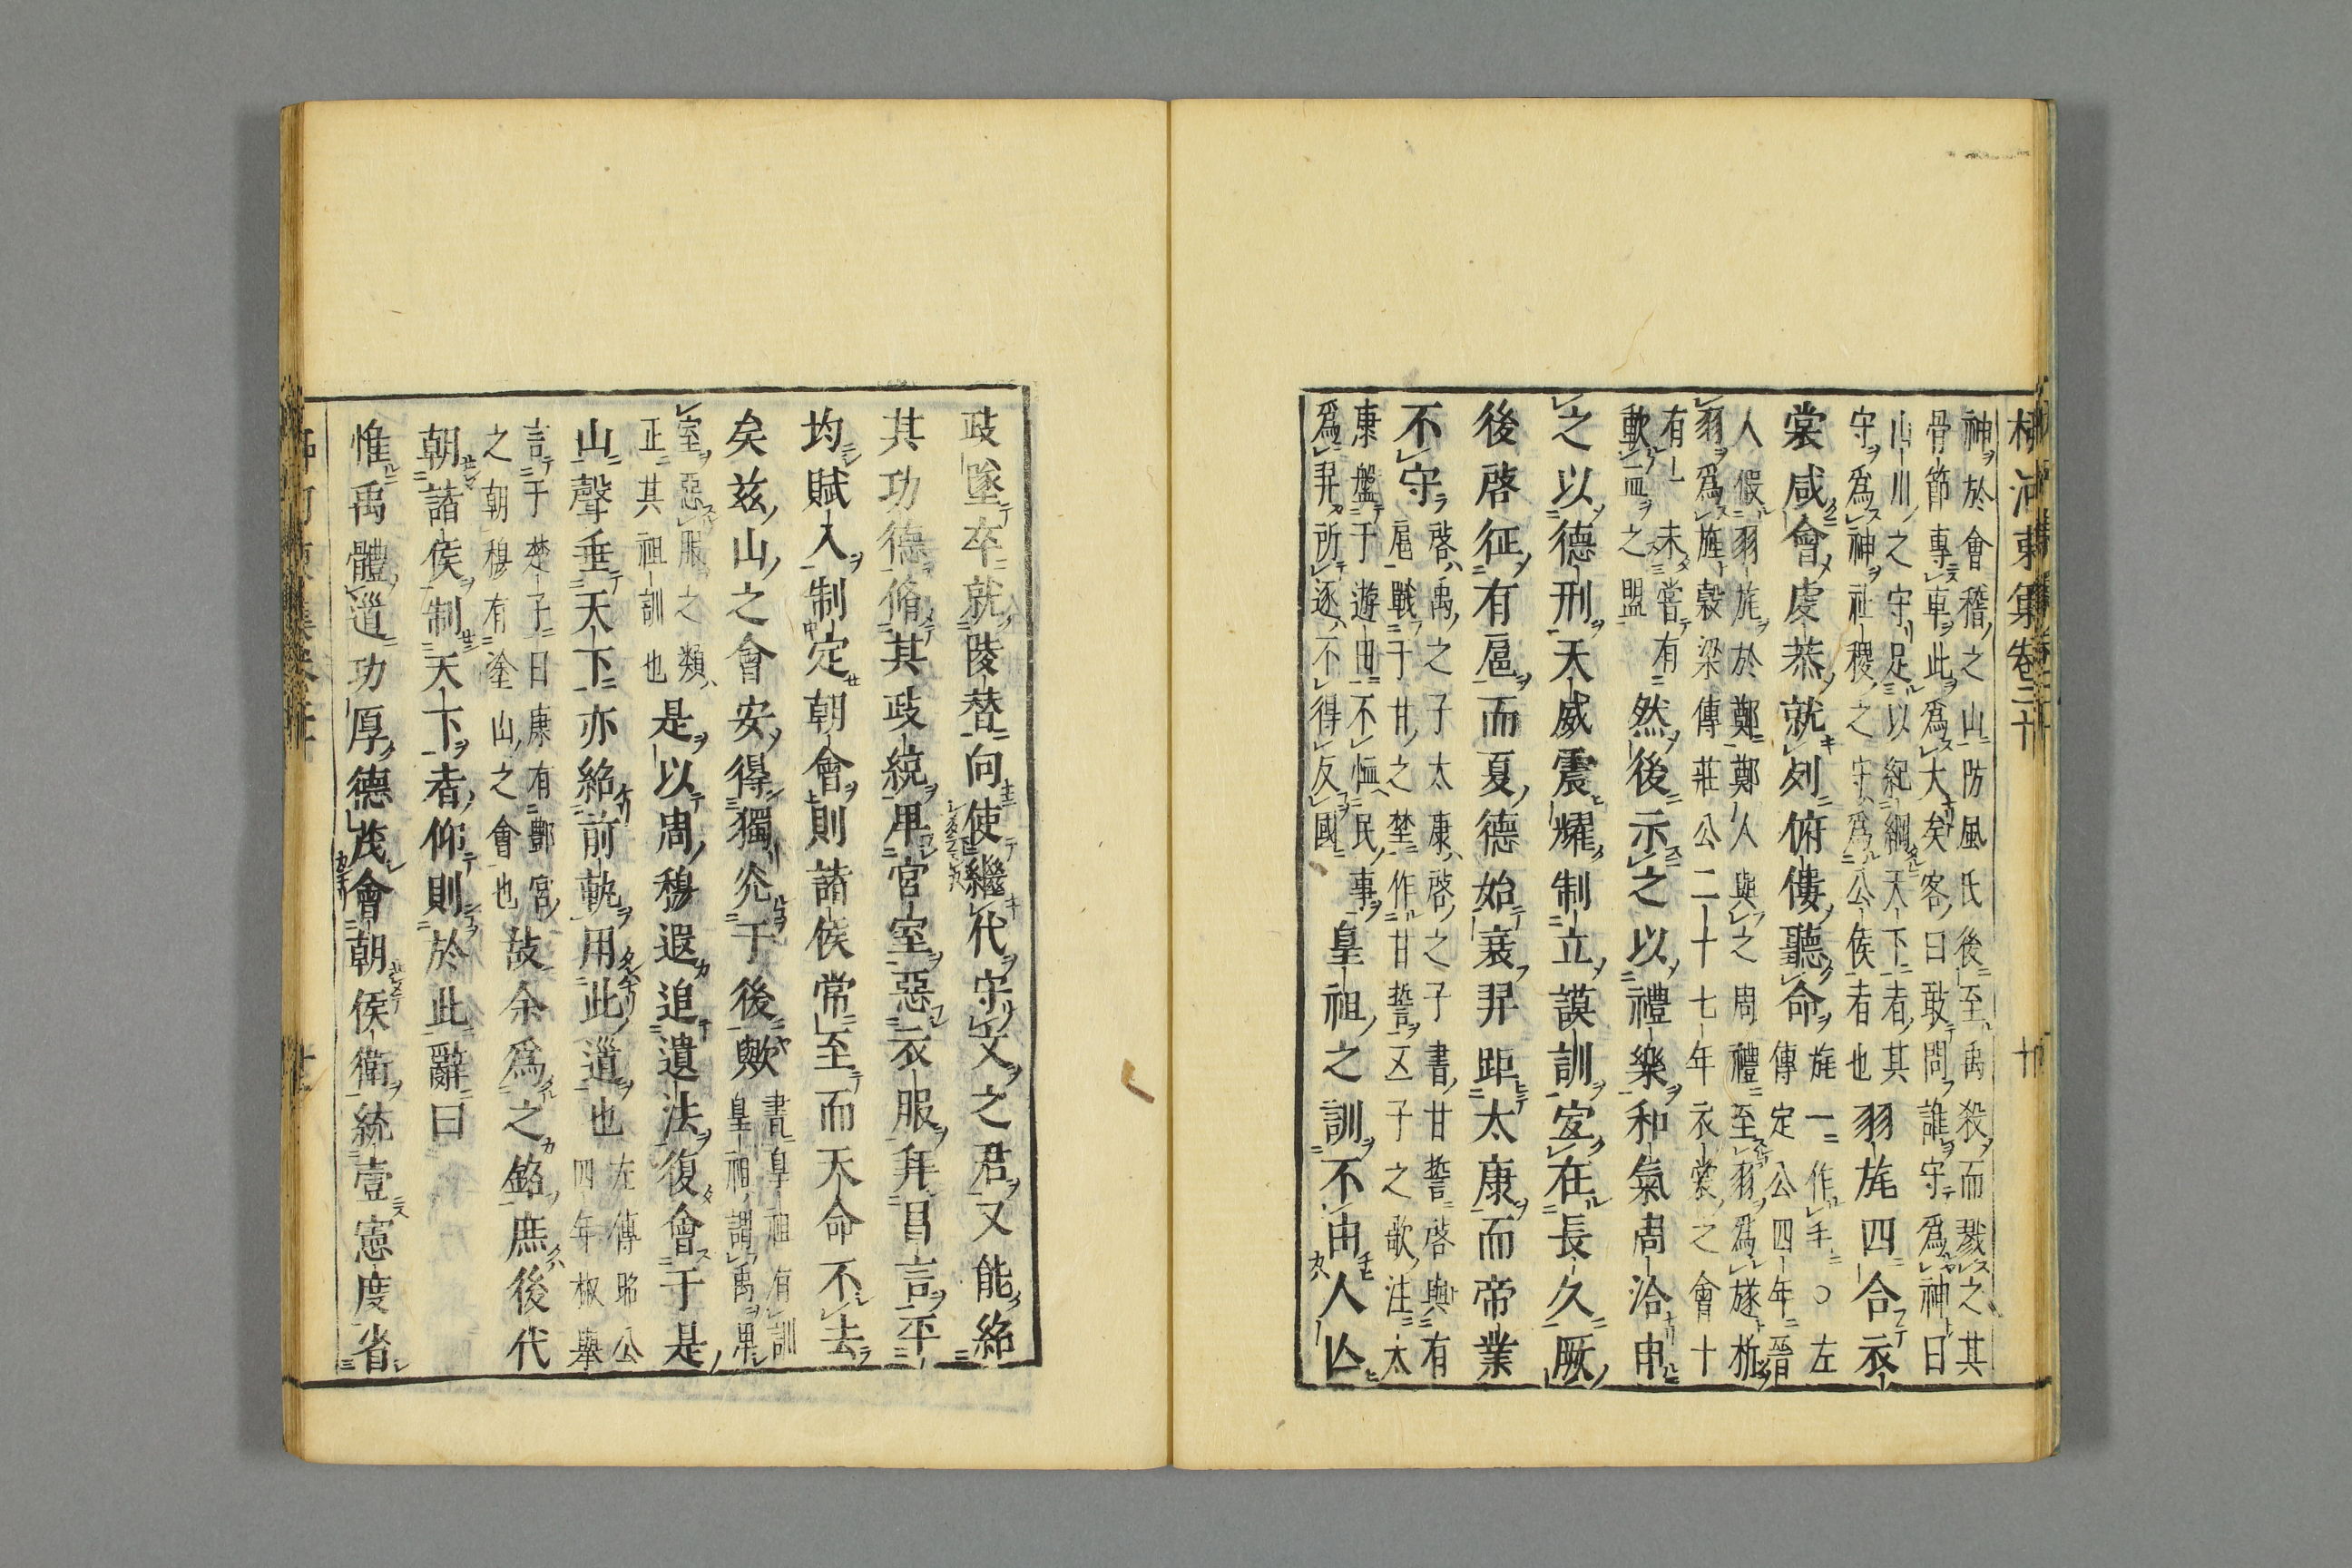 柳河東集卷二十 十
神於會稽之山防風氏後至禹殺而戮之其
骨節專車此爲大矣客曰敢問誰守爲神曰
山川之守足以紀綱天下者其
守爲神社稷之守爲公侯者也
羽旄四合衣
裳咸會虔恭就列俯僂聽命
旄一作手○左
傳定公四年晉
人假羽旄於鄭鄭人與之周禮至羽爲旞析
羽爲旌穀梁傳莊公二十七年衣裳之會十
有一未嘗有
歃血之盟
然後示之以禮樂和氣周洽申
之以德刑天威震耀制立謨訓宐在長久厥
後啓征有扈而夏德始衰羿距太康而帝業
不守
啓禹之子太康啓之子書甘誓啓與有
扈戰于甘之埜作甘誓五子之歌注太
康盤于遊田不恤民事
爲羿所逐不得反國
皇祖之訓不由人亾
政墜卒就陵替向使繼代守文之君又能紹
其功德脩其政統卑宮室惡衣服拜昌言平
均賦入制定朝會則諸侯常至而天命不去
矣兹山之會安得獨光于後歟
書皇祖有訓
皇祖謂禹卑
室惡服之類
正其祖訓也
是以周穆遐追遺法復會于是
山聲垂天下亦紹前軌用此道也
左傳昭公
四年椒舉
言于楚子曰康有酆宮
之朝穆有塗山之會也
故余爲之銘庶後代
朝諸侯制天下者仰則於此辭曰
惟禹體道功厚德茂會朝侯衛統壹憲度省